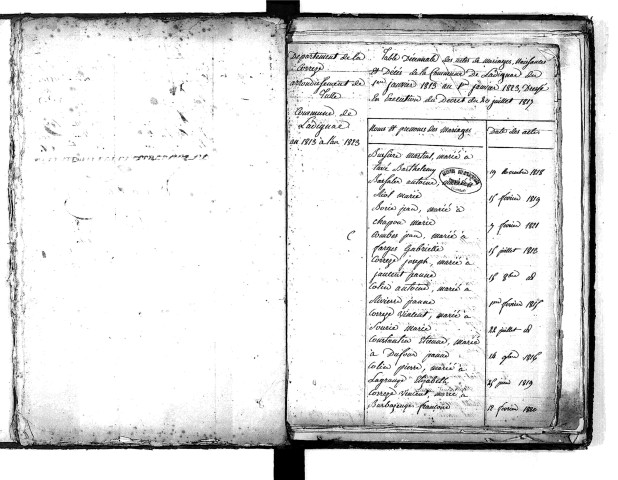 Département de la
Correze
arrondissement de
Tulle
Commune de
Ladignac
an 1813 à l'an 1823
Table Décennale des actes de mariages, Naissances
et Décès de la Commune de Ladignac du
1er janvier 1813 au 1er janvier 1823, Dressé
En Execution du Décret du 20 juillet 1807
Noms et prenoms des mariages
Dates des actes
martial, marié à
Barthelemy
19 novembre 1818
antoine,
marie
15 février 1819
Borie jean, marié à
chapou marie
7 février 1821
Combes jean, marié à
farges Gabrielle
15 juillet 1813
C
Correze joseph, marié à
jaurent jeanne
15 8bre d8
Colin antoine, marié à
Riviere jeanne
1er février 1815
Correze vincent, marié à
Sourie marie
22 juillet d8
Coustantin Etienne, marié
à Dufour jeanne
14 9bre 1816
Colin pierre, marié à
Lagrange Elizabeth
25 juin 1819
Correze vincent, marié à
francoise
12 février 1820